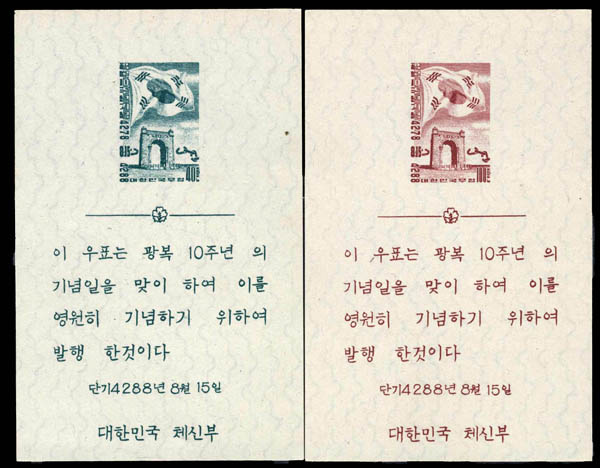 4278
4288
40
대한민국우표
이 우표는 광복 10주년 의
기념일을 맞이 하여 이를
영원히 기념하기 위하여
발행 한것이다
단기4288년 8월 15일
대한민국 체신부
4278
4288
100
대한민국우표
이 우표는 광복 10주년 의
기념일을 맞이 하여 이를
영원히 기념하기 위하여
발행 한것이다
단기4288년 8월 15일
대한민국 체신부